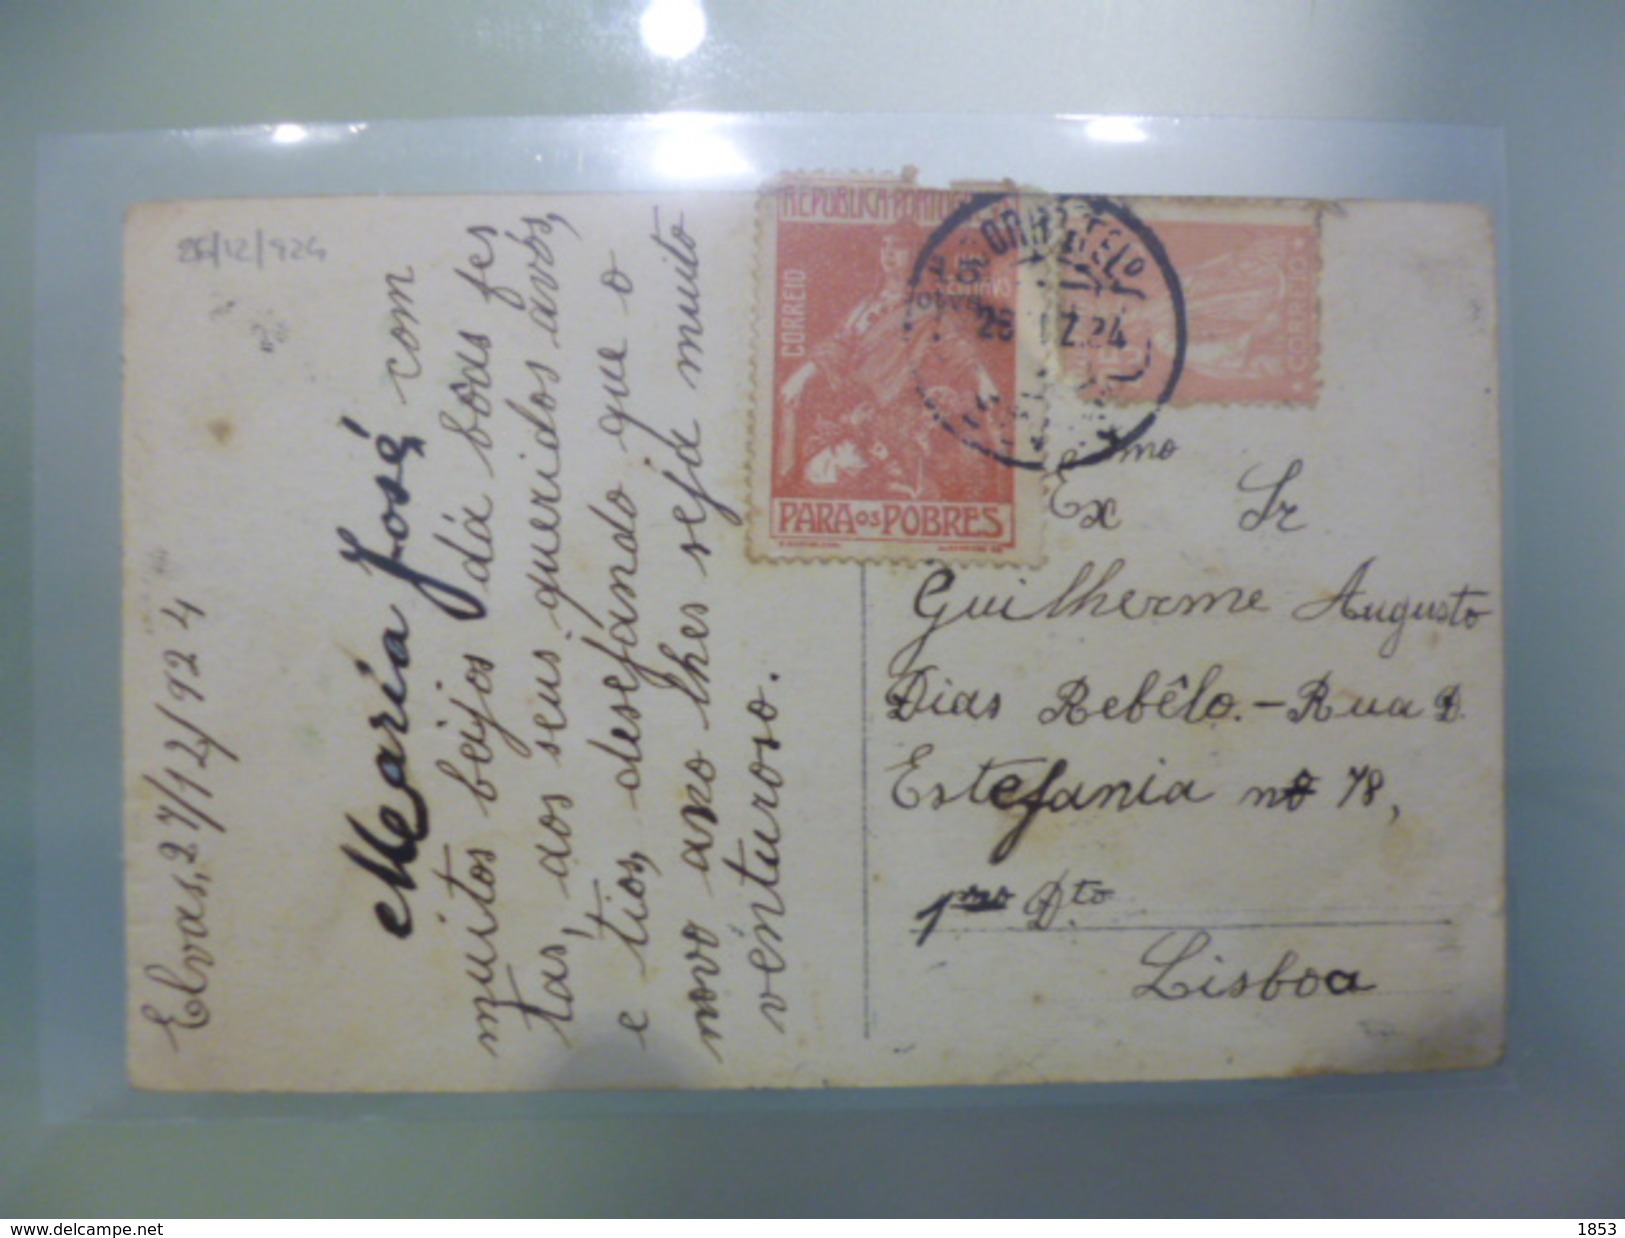 26/12/924
Elvas, 27/12/924
Maria José com
muitos beijos dá boas fes
tas, aos seus queridos avós,
e tios, desejando que o
novo ano lhes seja muito
venturoso.
REPUBLICA PORTUG
CORREIO
CENTAVO
PARA OS POBRES
CORREIO
26 DZ.24
Exmo Sr
Guilherme Augusto
Dias Rebêlo.-Rua D.
Estefania nº 78,
1mo Dto
Lisboa
www.delcampe.net
1853